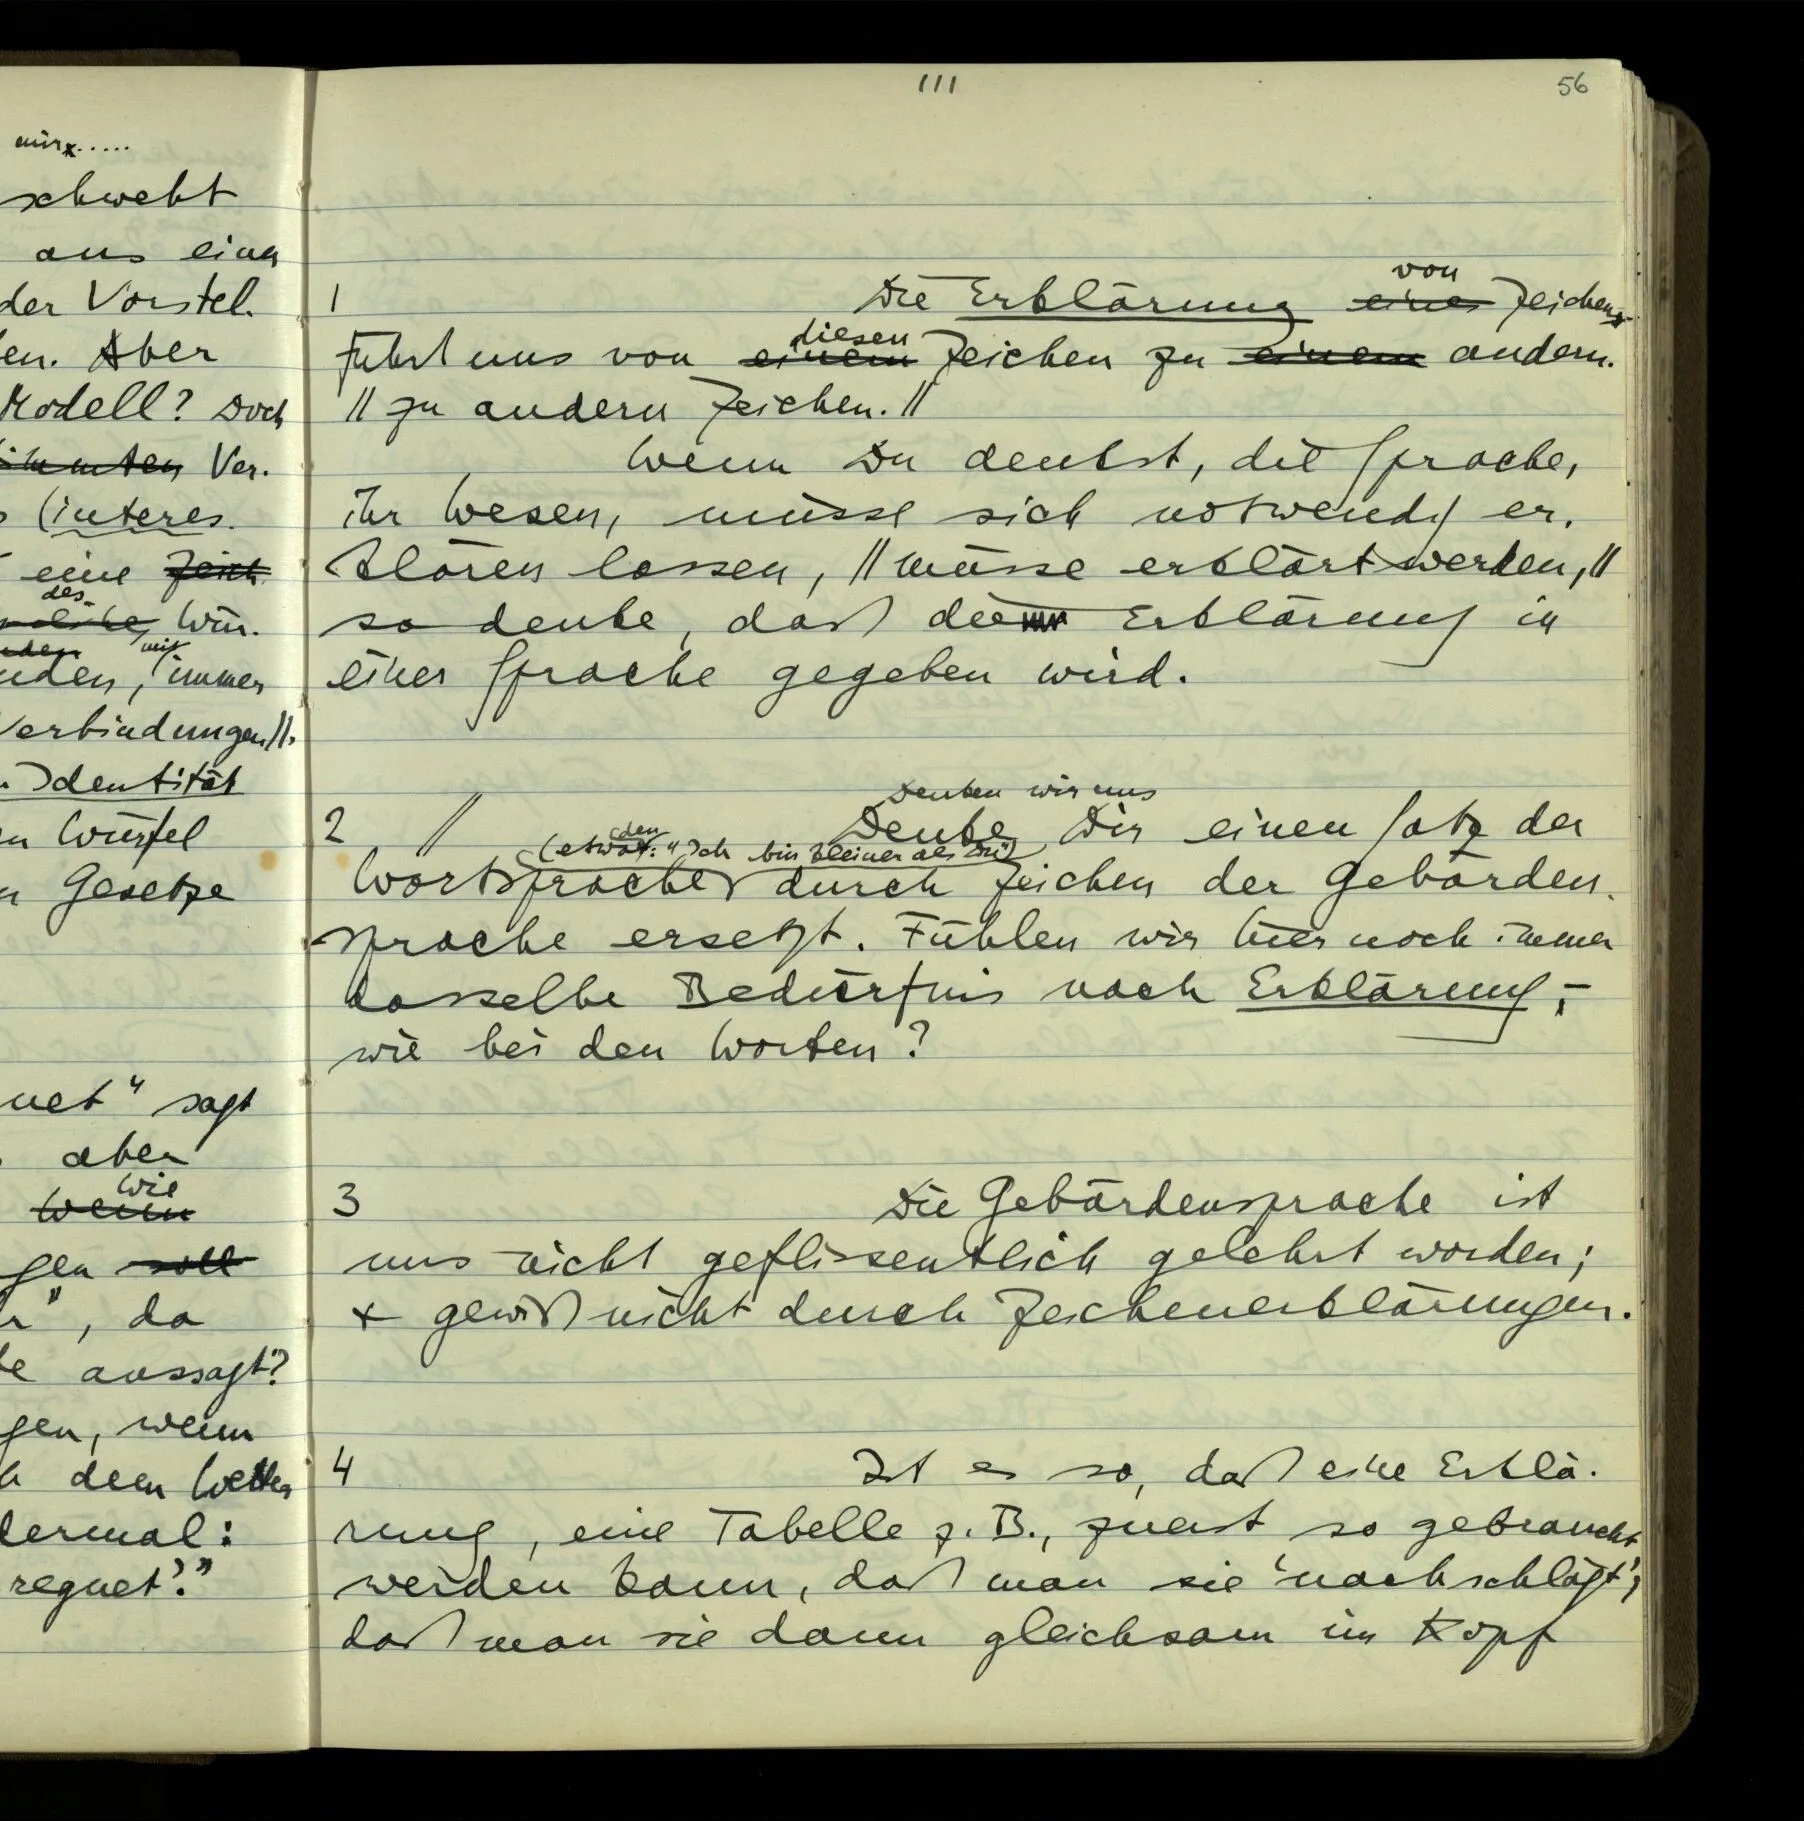 mir.....
schwebt
aus einer
der Vorstel.
en. Aber
Modell? Doch
Ver.
(interes.
eine Zeich.
des
Wür.
mit
nden, immer
Verbindungen//.
Identität
Würfel
Gesetze
net" sagt
aber
wie
wenn
gen soll
", da
aussagt?
gen, wenn
dem Wetter
dermal:
regnet?"
111
56
von
1 Die Erklärung eines Zeichens
diesen
führt uns von einem Zeichen zu einem andern.
// zu andern Zeichen. //
Wenn Du denkst, die Sprache,
ihr Wesen, müsse sich notwendig er.
klären lassen, // müsse erklärt werden, //
so denke, daß die Erklärung in
einer Sprache gegeben wird.
Denken wir uns
2 // Denke Dir einen Satz der
den
(etwa: "Ich bin kleiner als Du")
Wortsprache durch Zeichen der Gebärden.
sprache ersetzt. Fühlen wir hier noch immer
dasselbe Bedürfnis nach Erklärung,
wie bei den Worten?
3 Die Gebärdensprache ist
uns nicht geflissentlich gelehrt worden;
+ gewiß nicht durch Zeichenerklärungen.
4 Ist es so, daß eine Erklä.
rung, eine Tabelle z.B., zuerst so gebraucht
werden kann, daß man sie 'nachschlägt';
daß man sie dann gleichsam im Kopf